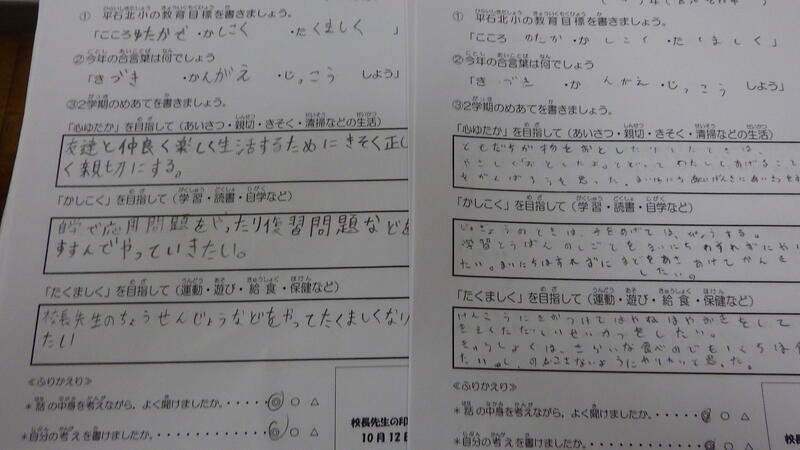 ① 平石北小の教育目標を書きましょう。
「こころゆたかで ・かしこく ・たくましく 」
②今年の合言葉は何でしょう
「きづき ・かんがえ ・じっこう しよう」
③2学期のめあてを書きましょう。
「心ゆたか」を目指して(あいさつ・親切・きそく・清掃などの生活)
友達と仲良く楽しく生活するためにきそく正し
く親切にする。
「かしこく」を目指して(学習・読書・自学など)
自学で応用問題をやったり復習問題など
すすんでやっていきたい。
「たくましく」を目指して(運動・遊び・給食・保健など)
校長先生のちょうせんじょうなどをやってたくましくなり
たい
≪ふりかえり≫
*話の中身を考えながら,よく聞けましたか。・・・・・・◎ ○ △
*自分の考えを書けましたか。・・・・・・・・・・・・◎ ○ △
校長先生の印
10月12日
① 平石北小の教育目標を書きましょう。
「こころ ゆたか ・かしこく ・たくましく 」
②今年の合言葉は何でしょう
「きづき ・かんがえ ・じっこう しよう」
③2学期のめあてを書きましょう。
「心ゆたか」を目指して(あいさつ・親切・きそく・清掃などの生活)
ともだちが物をおとしたりしたときは、
やさしくおとしたよ。とといってわたしてあげること
をがんばろうを思った。まいにちあいげんきにあいさつを
「かしこく」を目指して(学習・読書・自学など)
じゅぎょうのときは、手をあげては、ぴょうする。
学習とうばんのしごとをまいにちわすれずにやり
たい。まいにちはすれずにまどをあさあけてかんきを
したい。
「たくましく」を目指して(運動・遊び・給食・保健など)
けんこうにきがつけてはやねはやおきをして
きそくただしいせいかつをしたい。
きゅうしょくは、きらいな食べのでもくちは食
たい。し、のこさないようにやりたいと思った。
≪ふりかえり≫
*話の中身を考えながら,よく聞けましたか。・・・・・・◎ ○ △
*自分の考えを書けましたか。・・・・・・・・・・・・◎ ○ △